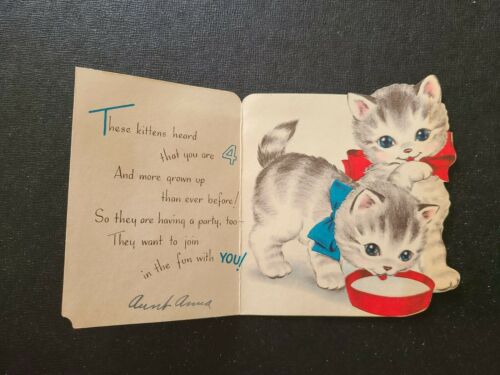 These kittens heard
that you are 4
And more grown up
than ever before!
So they are having a party, too
They want to join
in the fun with YOU!
Aunt Anna